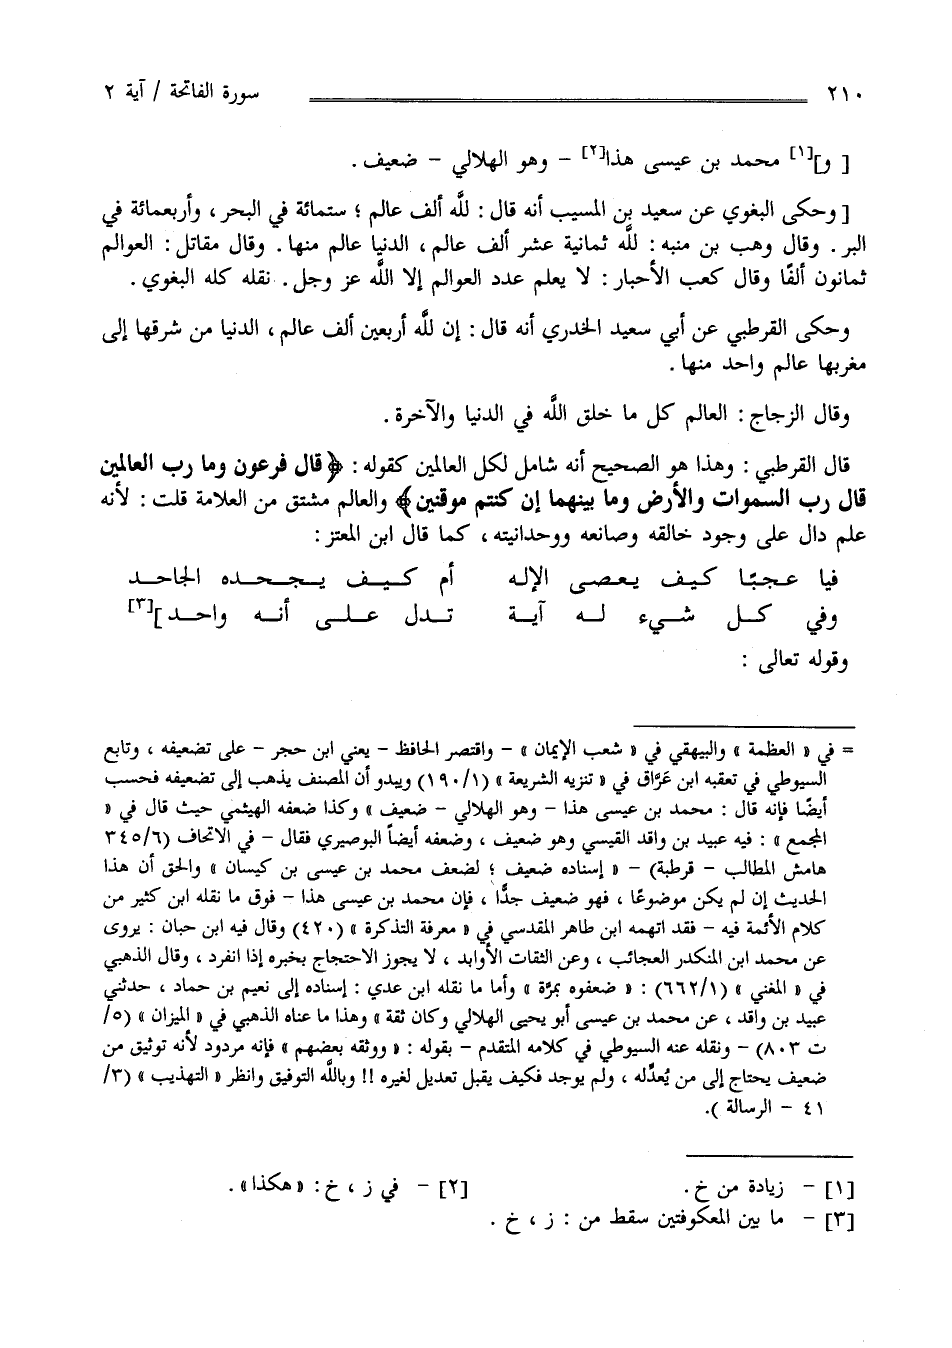 ٢١٠ سورة الفاتحة / آية ٢
[ و][١] محمد بن عيسى هذا[٢] – وهو الهلالي – ضعيف .
[ وحكى البغوي عن سعيد بن المسيب أنه قال : للَّه ألف عالم ؛ ستمائة في البحر ، وأربعمائة في
البر . وقال وهب بن منبه : للَّه ثمانية عشر ألف عالم ، الدنيا عالم منها . وقال مقاتل : العوالم
ثمانون ألفًا وقال كعب الأحبار : لا يعلم عدد العوالم إلا اللَّه عز وجل . نقله كله البغوي .
وحكى القرطبي عن أبي سعيد الخدري أنه قال : إن للَّه أربعين ألف عالم ، الدنيا من شرقها إلى
مغربها عالم واحد منها .
وقال الزجاج : العالم كل ما خلق اللَّه في الدنيا والآخرة .
قال القرطبي : وهذا هو الصحيح أنه شامل لكل العالمين كقوله : ﴿ قال فرعون وما رب العالمين
قال رب السموات والأرض وما بينهما إن كنتم موقنين ﴾ والعالم مشتق من العلامة قلت : لأنه
علم دال على وجود خالقه وصانعه ووحدانيته ، كما قال ابن المعتز :
فيا عجبًا كيف يعصى الإله أم كيف يجحده الجاحد
وفي كل شيء له آية تدل على أنه واحد ][٣]
وقوله تعالى :
= في « العظمة » والبيهقي في « شعب الإيمان » – واقتصر الحافظ – يعني ابن حجر – على تضعيفه ، وتابع
السيوطي في تعقبه ابن عَرَّاق في « تنزيه الشريعة » (١/ ١٩٠) ويبدو أن المصنف يذهب إلى تضعيفه فحسب
أيضًا فإنه قال : محمد بن عيسى هذا – وهو الهلالي – ضعيف » وكذا ضعفه الهيثمي حيث قال في «
المجمع » : فيه عبيد بن واقد القيسي وهو ضعيف ، وضعفه أيضاً البوصيري فقال – في الاتحاف (٦/ ٣٤٥
هامش المطالب – قرطبة) – « إسناده ضعيف ؛ لضعف محمد بن عيسى بن كيسان » والحق أن هذا
الحديث إن لم يكن موضوعًا ، فهو ضعيف جدًّا ، فإن محمد بن عيسى هذا – فوق ما نقله ابن كثير من
كلام الأئمة فيه – فقد اتهمه ابن طاهر المقدسي في « معرفة التذكرة » (٤٢٠) وقال فيه ابن حبان : يروى
عن محمد ابن المنكدر العجائب ، وعن الثقات الأوابد ، لا يجوز الاحتجاج بخبره إذا انفرد ، وقال الذهبي
في « المغني » (١/ ٦٦٢) : « ضعفوه بمرَّة » وأما ما نقله ابن عدي : إسناده إلى نعيم بن حماد ، حدثني
عبيد بن واقد ، عن محمد بن عيسى أبو يحيى الهلالي وكان ثقة » وهذا ما عناه الذهبي في « الميزان » (٥/
ت ٨٠٣) – ونقله عنه السيوطي في كلامه المتقدم – بقوله : « ووثقه بعضهم » فإنه مردود لأنه توثيق من
ضعيف يحتاج إلى من يُعدِّله ، ولم يوجد فكيف يقبل تعديل لغيره !! وباللَّه التوفيق وانظر « التهذيب » (٣/
٤١ – الرسالة ).
[١] – زيادة من خ . [٢] – في ز ، خ : « هكذا » .
[٣] – ما بين المعكوفتين سقط من : ز ، خ .